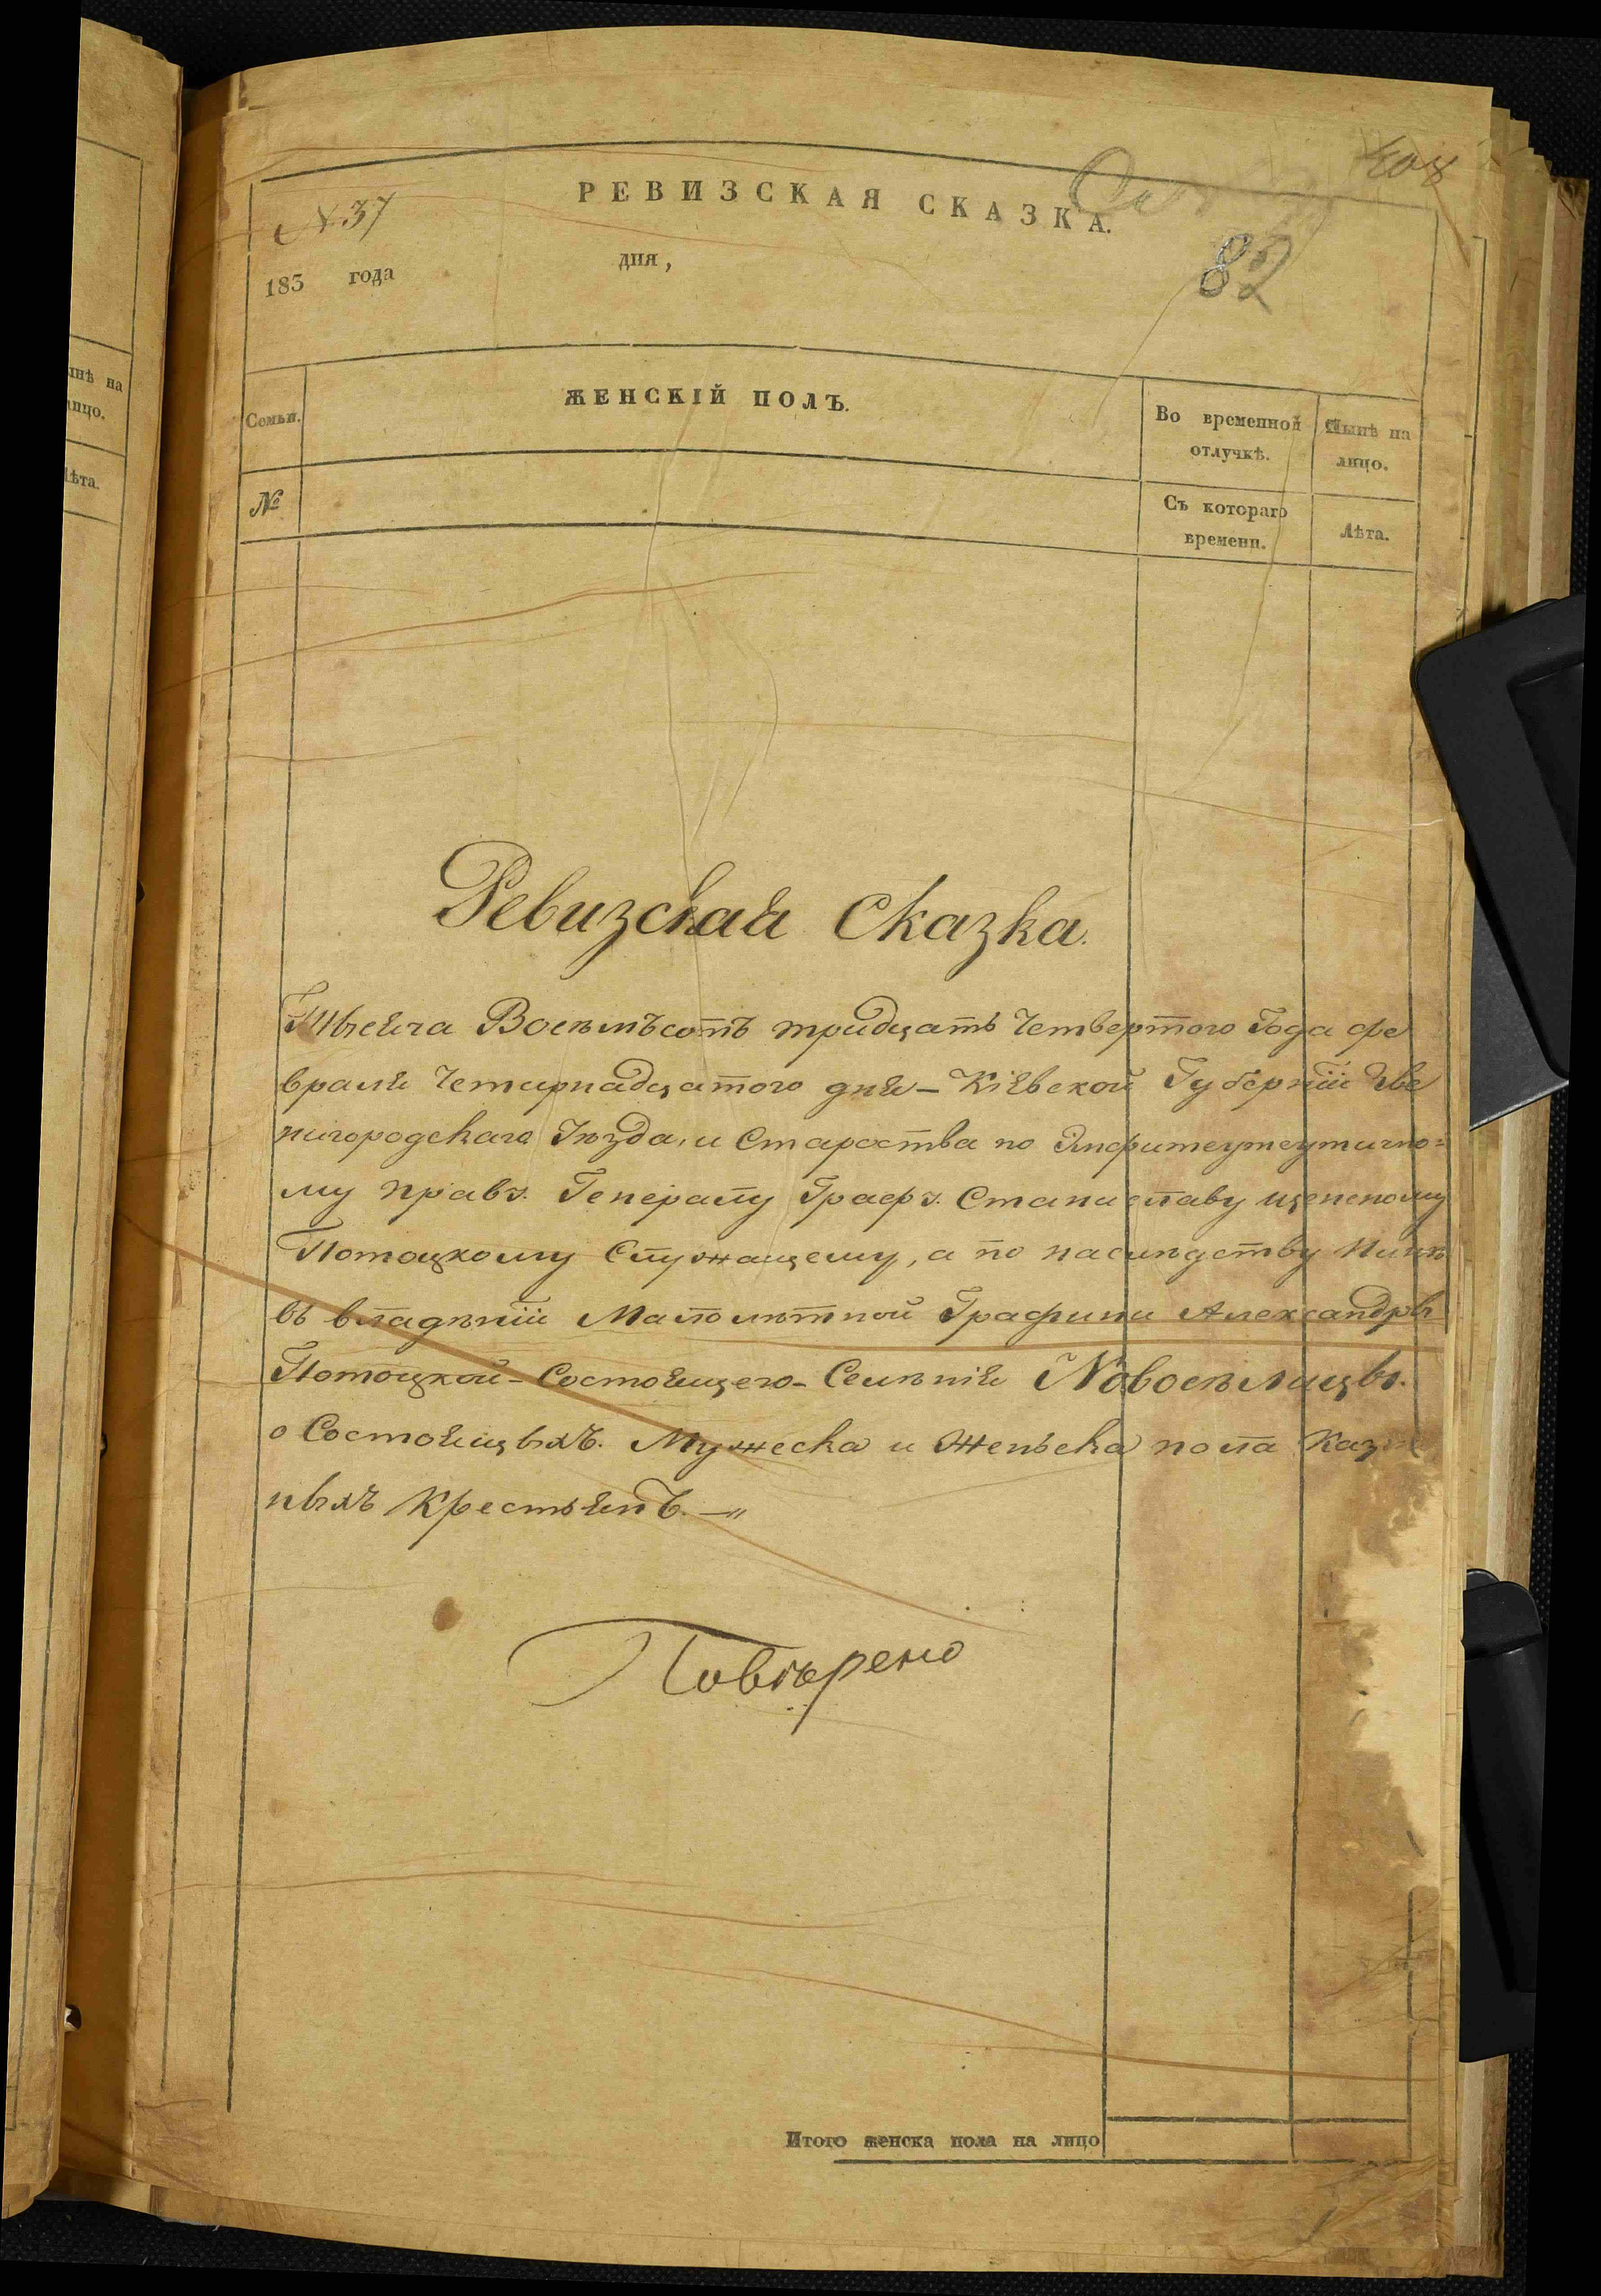 408
РЕВИЗСКАЯ СКАЗКА.
№ 37
82
183 года дня,
Семьи. ЖЕНСКІЙ ПОЛЪ. Во временной отлучкѣ. Нынѣ на лицо.
№ Съ котораго времени. Лѣта.
инѣ на
лицо.
лѣта.
Ревизская Сказка.
Тысяча Восемьсотъ тридцать Четвертого Года фе
враля Четырнадцатого дня – Кіевской Губерніи Зве
нигородскаго Уѣзда, и Староства по Эмфитеутеутично=
му правѣ. Генералу Графѣ. Станиславу щенсному
Потоцкому Служащему, а по наслѣдству Нынѣ
въ владѣніи Малолѣтной Графини Александрѣ
Потоцкой – Состоящего – Селѣнія Новосѣлицѣ.
о Состоящыхъ. Мужеска и Женьска пола Казен
ныхъ Крестьянъ. –"
Повѣрено
Итого женска пола на лицо